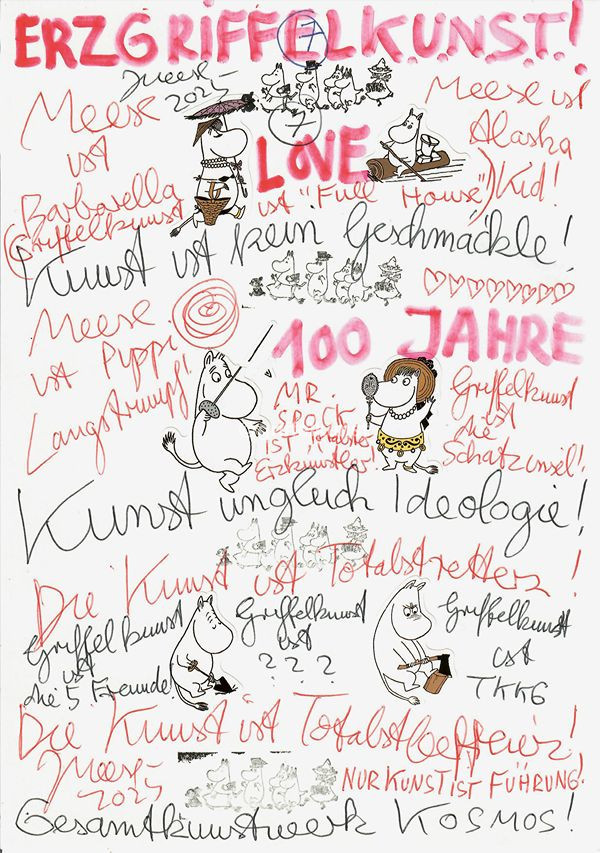 ERZGRIFFELKUNST!
7
Meese
2025
7
Meese
ist
Barbarella
LOVE
Meese ist
Alaska
Kid!
(Griffelkunst ist "Full House")
Kunst ist kein Geschmäckle!
Meese
ist Pippi
Langstrumpf!
100 JAHRE
MR.
SPOCK
IST Totalster
Erzkünstler!
Griffelkunst
ist
die
Schatzinsel!
Kunst ungleich Ideologie!
Die Kunst ist Totalstretterz!
Griffelkunst
ist
die 5 Freunde!
Griffelkunst
ist
? ? ?
Griffelkunst
ist
TKKG
Die Kunst ist
Meese
2025
NUR KUNST IST FÜHRUNG!
Gesamtkunstwerk KOSMOS!